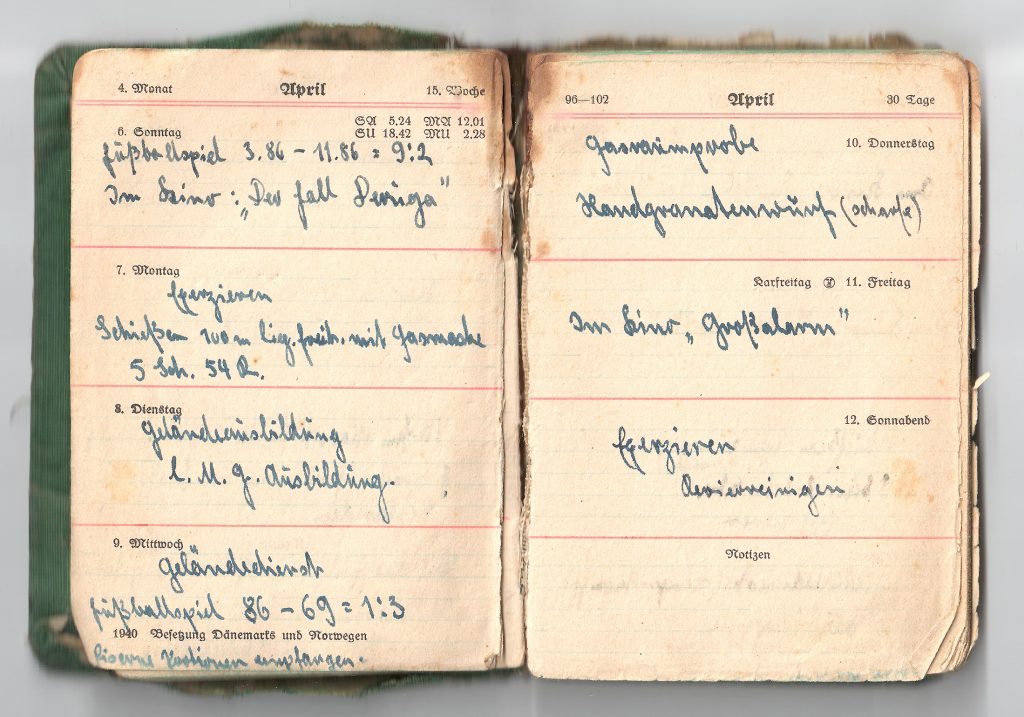 4. Monat April 15. Woche
6. Sonntag SA 5.24 MA 12.01
SU 18.42 MU 2.28
Fußballspiel 3.86 – 11.86 = 9:2
Im Kino: „Der Fall Deruga"
7. Montag
Exerzieren
Schießen 100 m lig. freih. mit Gasmaske
5 Sch. 54 R.
8. Dienstag
Geländeausbildung
l. M. G. Ausbildung.
9. Mittwoch
Geländedienst
Fußballspiel 86 – 69 = 1:3
1940 Besetzung Dänemarks und Norwegen
Eiserne Portionen empfangen.
96—102 April 30 Tage
10. Donnerstag
Gasraumprobe
Handgranatenwurf (scharf)
Karfreitag 11. Freitag
Im Kino „Großalarm"
12. Sonnabend
Exerzieren
Revierreinigen
Notizen